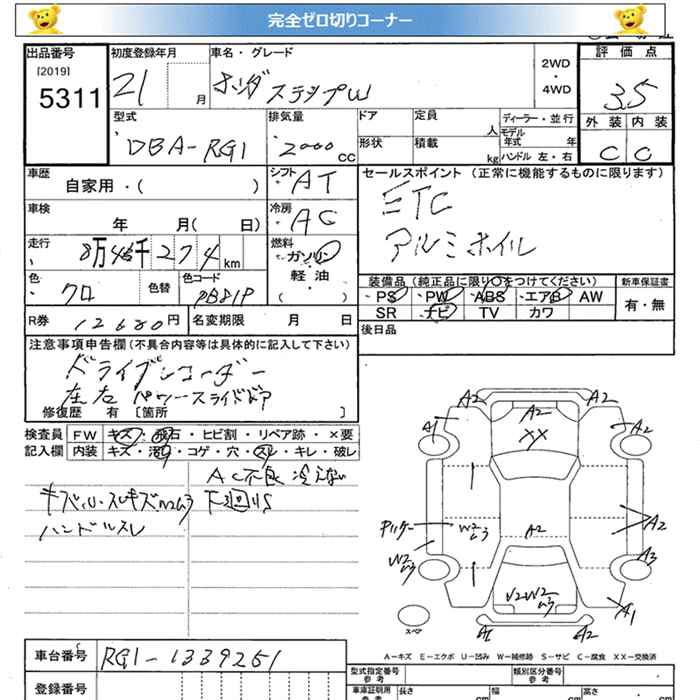 完全ゼロ切りコーナー
出品番号 初度登録年月 車名・グレード 評価点
[2019]
5311
21 月
ホンダ ステップW
2WD
・
4WD
3.5
外装 内装
C C
型式 排気量 ドア 定員 ディーラー・並行
DBA-RG1 2000 CC
人 モデル年式 年
形状 積載 kg ハンドル 左・右
車歴 シフト セールスポイント (正常に機能するものに限ります)
自家用・( ) AT
ETC
アルミホイル
車検 冷房
年 月( 日) AC
走行 燃料
8万4千274km ガソリン
軽・油
( )
色 色替 色コード
クロ PB81P
装備品 (純正品に限り○をつけてください) 新車保証書
PS PW ABS エアB AW 有・無
SR ナビ TV カワ
R券 12680円 名変期限 月 日
後日品
注意事項申告欄 (不具合内容等は具体的に記入して下さい)
ドライブレコーダー
左右 パワースライドドア
修復歴 有 [箇所 ]
検査員 FW キズ・飛石・ヒビ割・リペア跡・×要
記入欄 内装 キズ・汚れ・コゲ・穴・スレ・キレ・破レ
AC不良 冷えない
下廻りS
ハンドルスレ
A2 A2 A2
XX
A1 A2
W2ムラ A2 A2
W2ムラ A3
A1
A2
スペア
A-キズ E-エクボ U-凹み W-補修跡 S-サビ C-腐食 XX-交換済
車台番号 RG1-1339251
型式指定番号 参考 類別区分番号 参考
登録番号
車庫証明用 参考 長さ cm 幅 cm 高さ cm